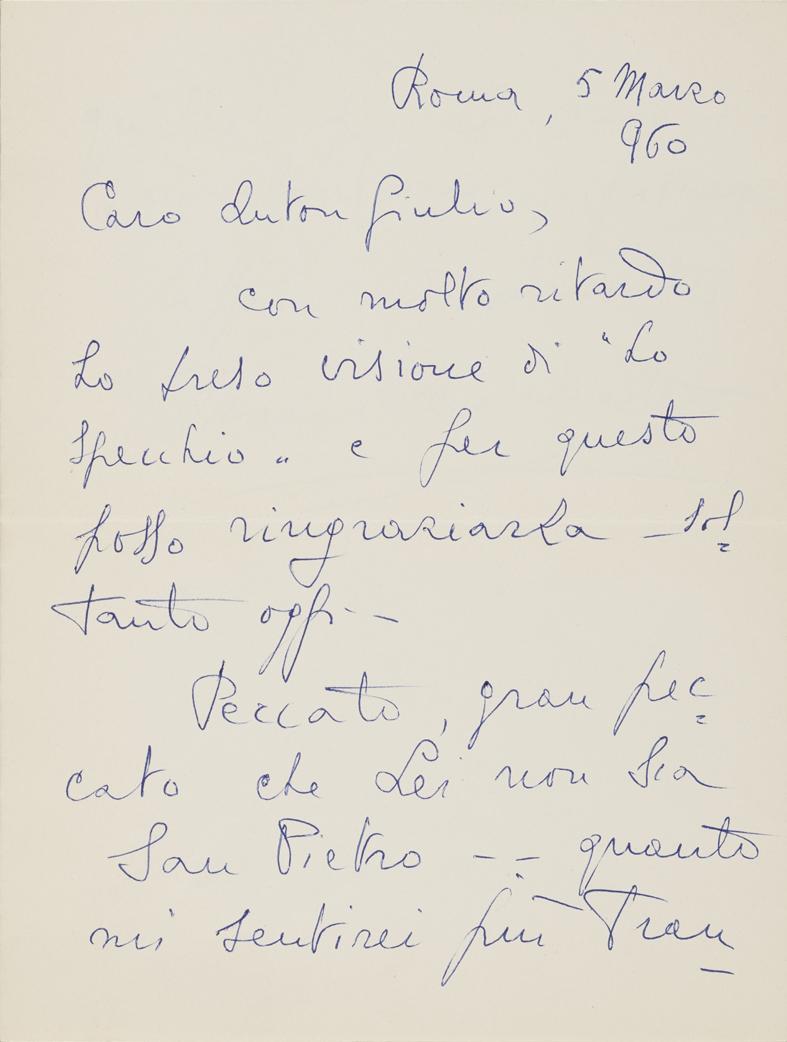 Roma, 5 Marzo
960
Caro Anton Giulio,
con molto ritardo
ho preso visione di "Lo
Specchio" e per questo
posso ringraziarLa sol=
tanto oggi -
Peccato, gran pec=
cato che Lei non sia
San Pietro - - quanto
mi sentirei più tran-